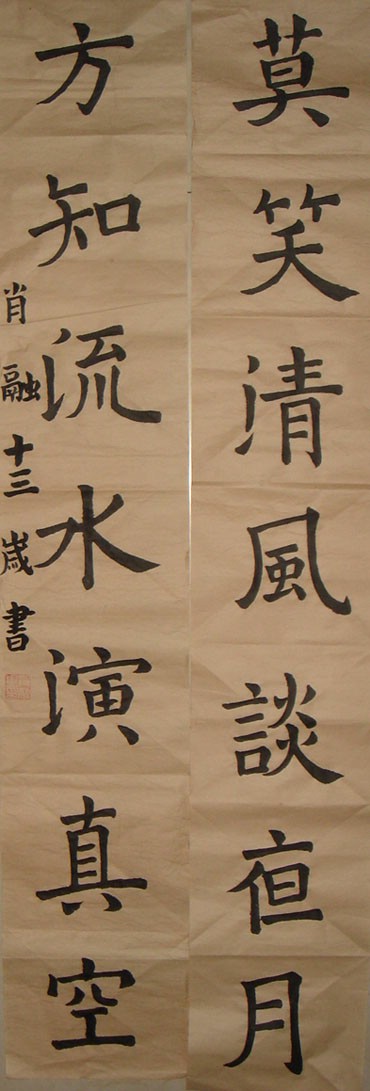 莫笑清風談亱月
方知流水演真空
肖融十三歲書